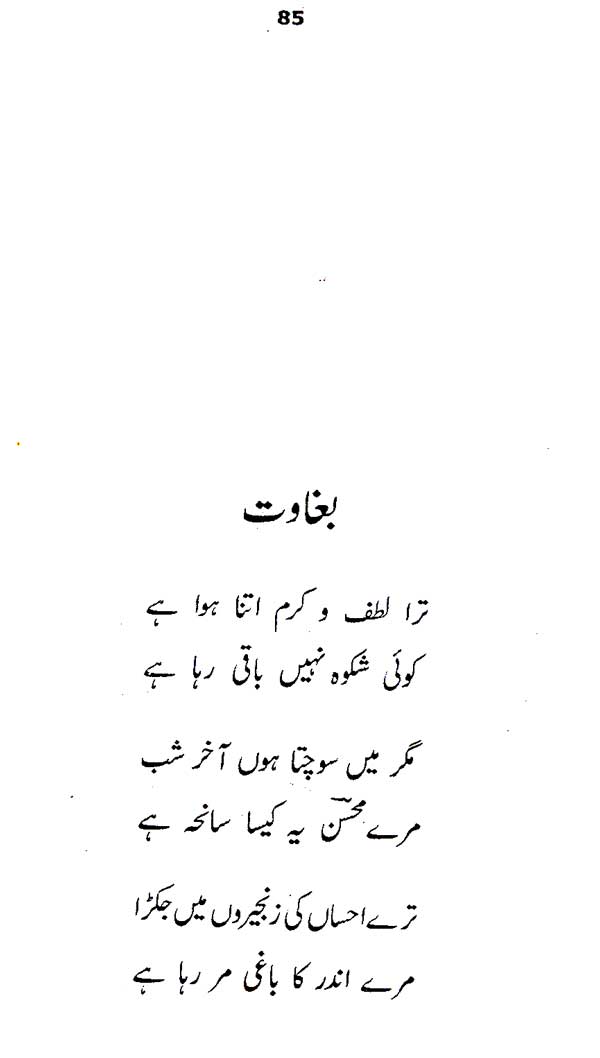 85
بغاوت
ترا لطف و کرم اتنا ہوا ہے
کوئی شکوہ نہیں باقی رہا ہے
مگر میں سوچتا ہوں آخر شب
مرے محسنؔ یہ کیسا سانحہ ہے
ترے احساں کی زنجیروں میں جکڑا
مرے اندر کا باغی مر رہا ہے